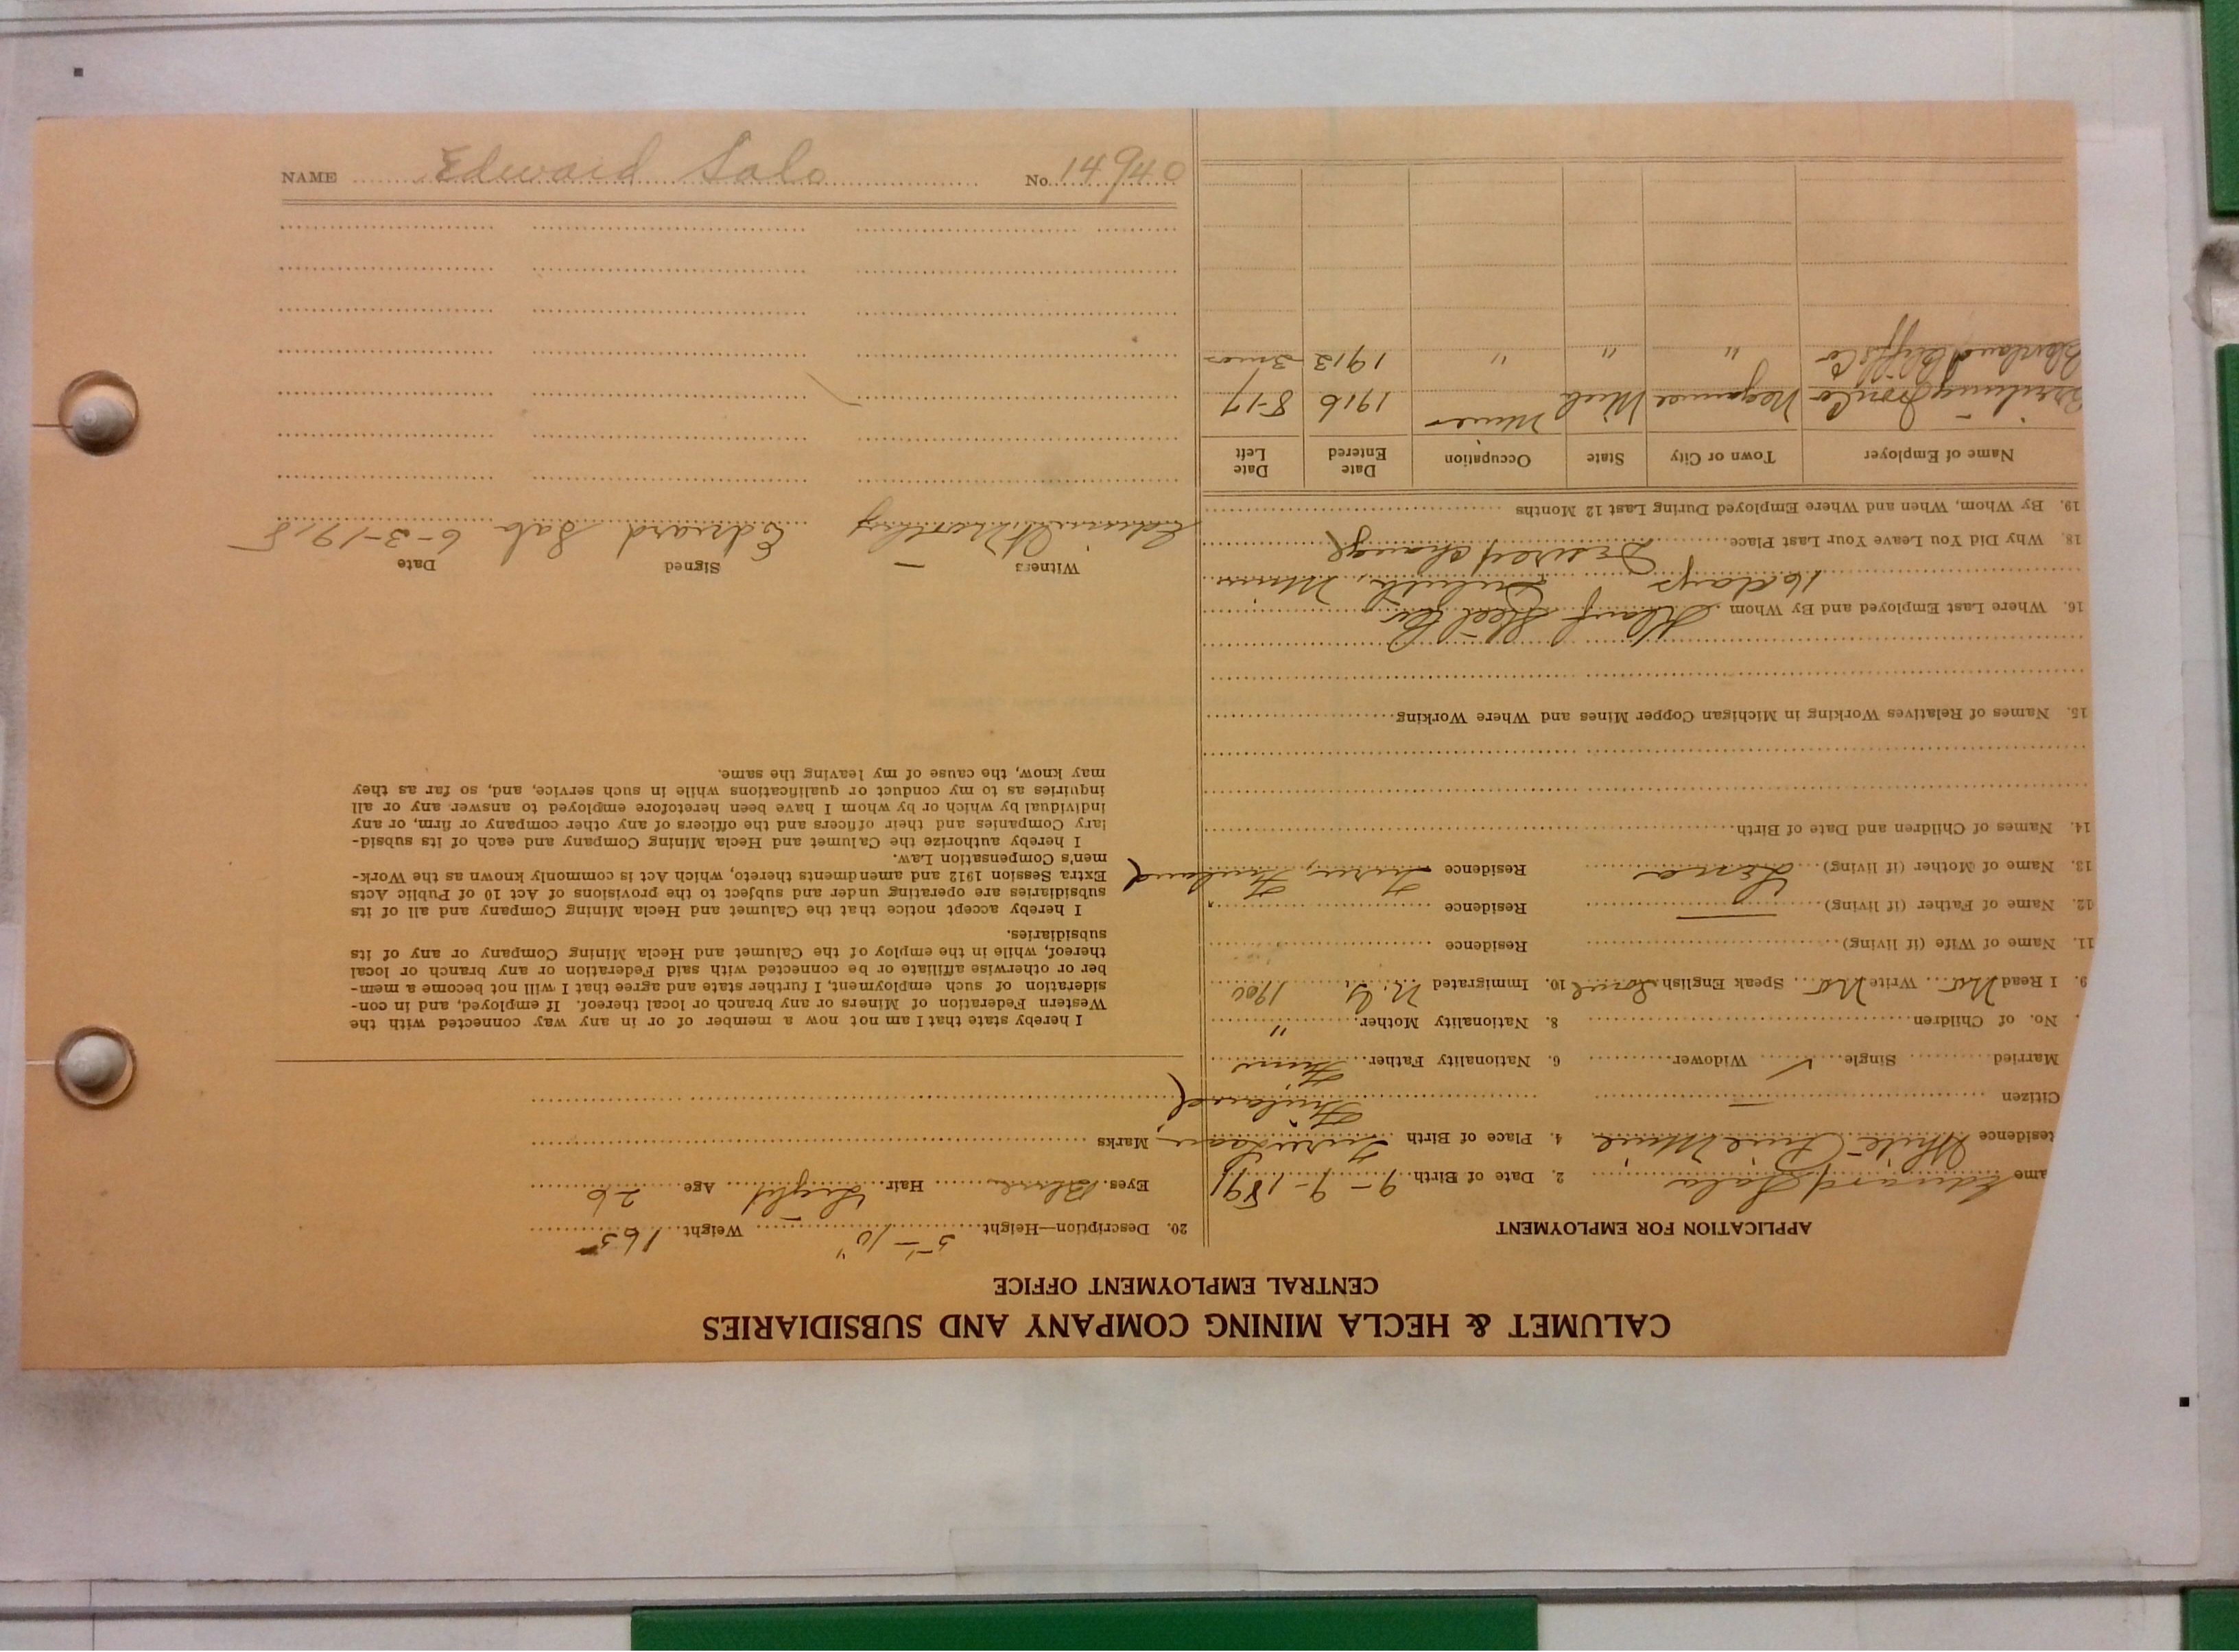 CALUMET & HECLA MINING COMPANY AND SUBSIDIARIES
CENTRAL EMPLOYMENT OFFICE
APPLICATION FOR EMPLOYMENT
ame Edward Salo 2. Date of Birth 9-9-1891
Residence White Pine Mine 4. Place of Birth
Finland
Citizen —
Married Single ✓ Widower 6. Nationality Father Finn
No. of Children 8. Nationality Mother "
9. I Read No Write No Speak English Some 10. Immigrated N.Y. 1900
11. Name of Wife (if living) Residence
12. Name of Father (if living) — Residence
13. Name of Mother (if living) Lena Residence Finland
14. Names of Children and Date of Birth
15. Names of Relatives Working in Michigan Copper Mines and Where Working
16. Where Last Employed and By Whom Steel Co
16 days Duluth, Minn
18. Why Did You Leave Your Last Place Desired change
19. By Whom, When and Where Employed During Last 12 Months
Name of Employer Town or City State Occupation Date Entered Date Left
Iron Co Negaunee Mich Miner 1916 8-17
Cleveland Cliffs Co " " " 1913 3 mos
20. Description—Height 5-10" Weight 165
Eyes Blue Hair Light Age 26
Marks
I hereby state that I am not now a member of or in any way connected with the
Western Federation of Miners or any branch or local thereof. If employed, and in con-
sideration of such employment, I further state and agree that I will not become a mem-
ber or otherwise affiliate or be connected with said Federation or any branch or local
thereof, while in the employ of the Calumet and Hecla Mining Company or any of its
subsidiaries.
I hereby accept notice that the Calumet and Hecla Mining Company and all of its
subsidiaries are operating under and subject to the provisions of Act 10 of Public Acts
Extra Session 1912 and amendments thereto, which Act is commonly known as the Work-
men's Compensation Law.
I hereby authorize the Calumet and Hecla Mining Company and each of its subsid-
iary Companies and their officers and the officers of any other company or firm, or any
individual by which or by whom I have been heretofore employed to answer any or all
inquiries as to my conduct or qualifications while in such service, and, so far as they
may know, the cause of my leaving the same.
Witness Signed Date
Edward Salo 6-3-1918
NAME Edward Salo No. 14940